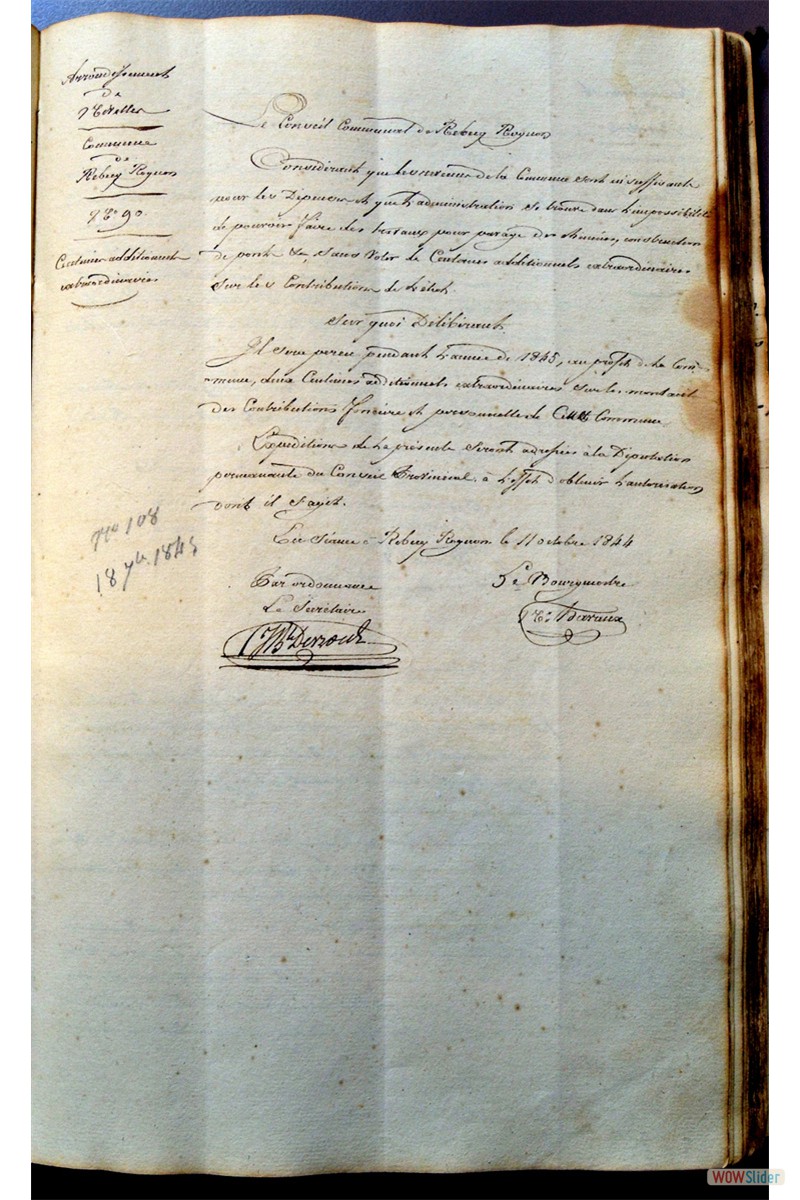 Arrondissement
de
Nivelles
Commune
de
Rebecq Rognon
N° 90
Centimes additionnels
extraordinaires
Le Conseil Communal de Rebecq Rognon
Considérant que les revenus de la Commune sont insuffisants
pour les Dépenses et que l'administration se trouve dans l'impossibilité
de pouvoir faire des travaux pour pavage des chemins, construction
de ponts &a, sans voter de Centimes additionnels extraordinaires
sur les Contributions de l'état.
Sur quoi Délibérant
Il sera perçu pendant l'année de 1845, au profit de la Com-
mune, deux Centimes additionnels extraordinaires sur le montant
des Contributions foncière et personnelle de Cette Commune
Expéditions de la présente seront adressées à la Députation
permanente du Conseil Provincial, à l'effet d'obtenir l'autorisation
dont il s'agit.
En Séance à Rebecq Rognon le 11 octobre 1844
Par ordonnance
Le Secrétaire
Le Bourgmestre
N° 108
18 7bre 1845
WOWSlider